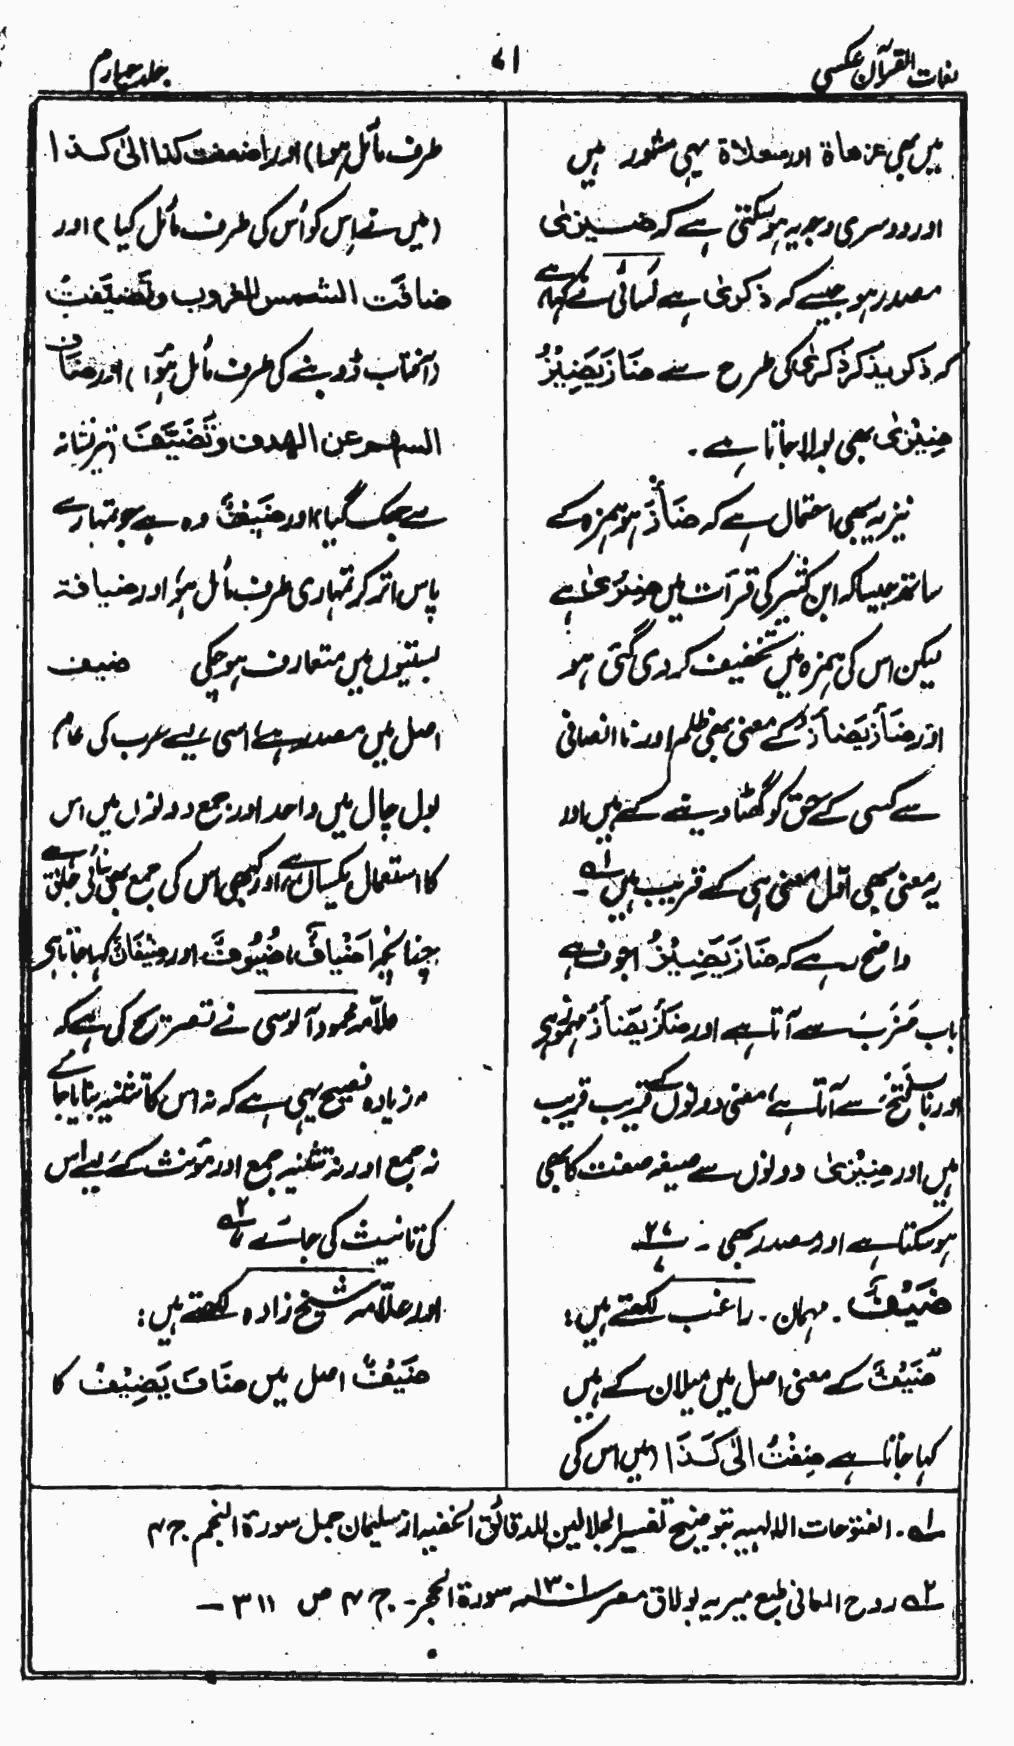 لغات القرآن عکسی
۷۱
جلد چہارم
میں بھی عزھاۃ اور سعلاۃ یہی مشہور ہیں
اور دوسری وجہ یہ ہو سکتی ہے کہ ضیزیٰ
مصدر ہو جیسے کہ ذکریٰ ہے کسائی نے کہا ہے
کہ ذکر یذکر ذکریٰ کی طرح سے ضَازَ یَضِیْزُ
ضِیْزیٰ بھی بولا جاتا ہے۔
نیز یہ بھی احتمال ہے کہ ضَأَزَ ہو ہمزہ کے
ساتھ جیسا کہ ابن کثیر کی قرآت میں ضِئْزیٰ ہے
لیکن اس کی ہمزہ میں تخفیف کر دی گئی ہو
اور ضَأَزَ یَضْأَزُ کے معنی بھی ظلم اور نا انصافی
سے کسی کے حق کو گھٹا دینے کے ہیں اور
یہ معنی بھی اقل معنی ہی کے قریب ہیں ۱؎۔
واضح رہے کہ ضَازَ یَضِیْزُ اجوف ہے
باب ضَرَبَ سے آتا ہے اور ضَأَزَ یَضْأَزُ مہموز ہے
اور باب فَتَحَ سے آتا ہے، معنی دونوں کے قریب قریب
ہیں اور ضِیْزیٰ دونوں سے صیغہ صفت کا بھی
ہو سکتا ہے اور مصدر بھی ۔ ۲۷
ضَیْفٌ . مہمان . راغب لکھتے ہیں :
ضَیْفٌ کے معنی اصل میں میلان کے ہیں
کہا جاتا ہے ضِفْتُ اِلیٰ کَذَا (میں اس کی
طرف مائل ہوا) اور اضفت کذا الیٰ کذا
(میں نے اس کو اُس کی طرف مائل کیا) اور
ضافت الشمس للغروب و تَضَیَّفَتْ
(آفتاب ڈوبنے کی طرف مائل ہوا) اور ضاف
السھم عن الھدف و تَضَیَّفَ (تیر نشانہ
سے بہک گیا) اور ضَیْفٌ وہ ہے جو تمہارے
پاس اتر کر تمہاری طرف مائل ہو اور ضیافۃ
بستیوں میں متعارف ہو چکی ضیف
اصل میں مصدر ہے اسی لیے عرب کی عام
بول چال میں واحد اور جمع دونوں میں اس
کا استعمال یکساں ہے اور کبھی اس کی جمع بھی بنائی جاتی ہے
چنانچہ اَضْیَافٌ، ضُیُوفٌ، اور ضِیْفَانٌ کہا جاتا ہے
علامہ محمود آلوسی نے تصریح کی ہے کہ
زیادہ فصیح یہی ہے کہ نہ اس کا تثنیہ بنایا جائے
نہ جمع اور نہ تثنیہ جمع اور مؤنث کے لیے اس
کی تانیث کی جائے ۲؎
اور علّامہ شیخ زادہ لکھتے ہیں :
ضَیْفٌ اصل میں ضَافَ یَضِیْفُ کا
۱؎. الفتوحات الالٰہیہ بتوضیح تفسیر الجلالین للدقائق الخفیہ از سلیمان جمل سورۃ النجم ج ۴
۲؎ روح المعانی طبع میریہ بولاق مصر ۱۳۰۱ھ سورۃ الحجر۔ ج ۴ ص ۳۱۱ —